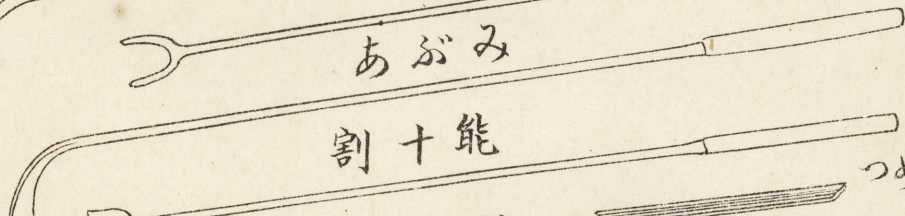 あぶみ
割十能
つ